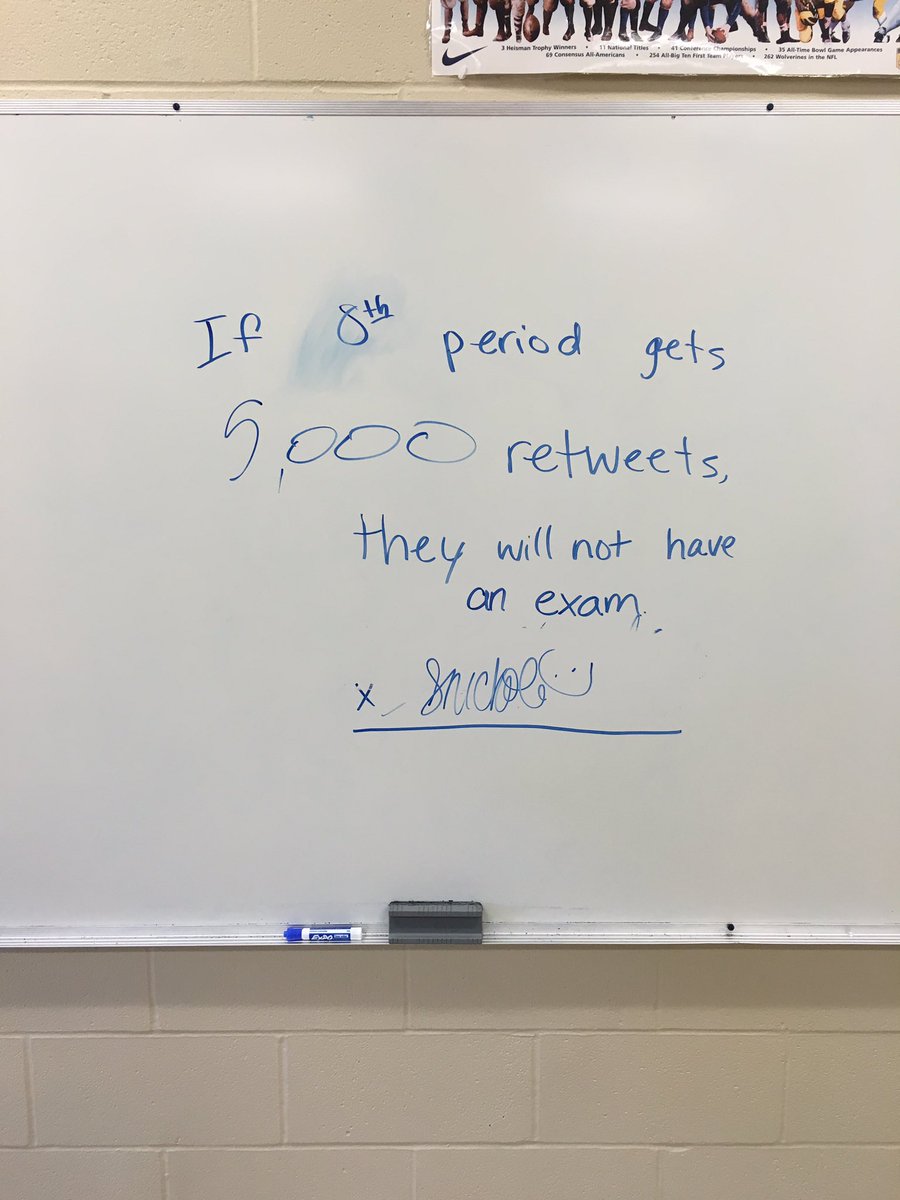 3 Heisman Trophy Winners • 11 National Titles • 41 Conference Championships • 35 All-Time Bowl Game Appearances
69 Consensus All-Americans • 254 All-Big Ten First Team Players • 262 Wolverines in the NFL
If 8th period gets
5,000 retweets,
they will not have
an exam.
x
EXPO